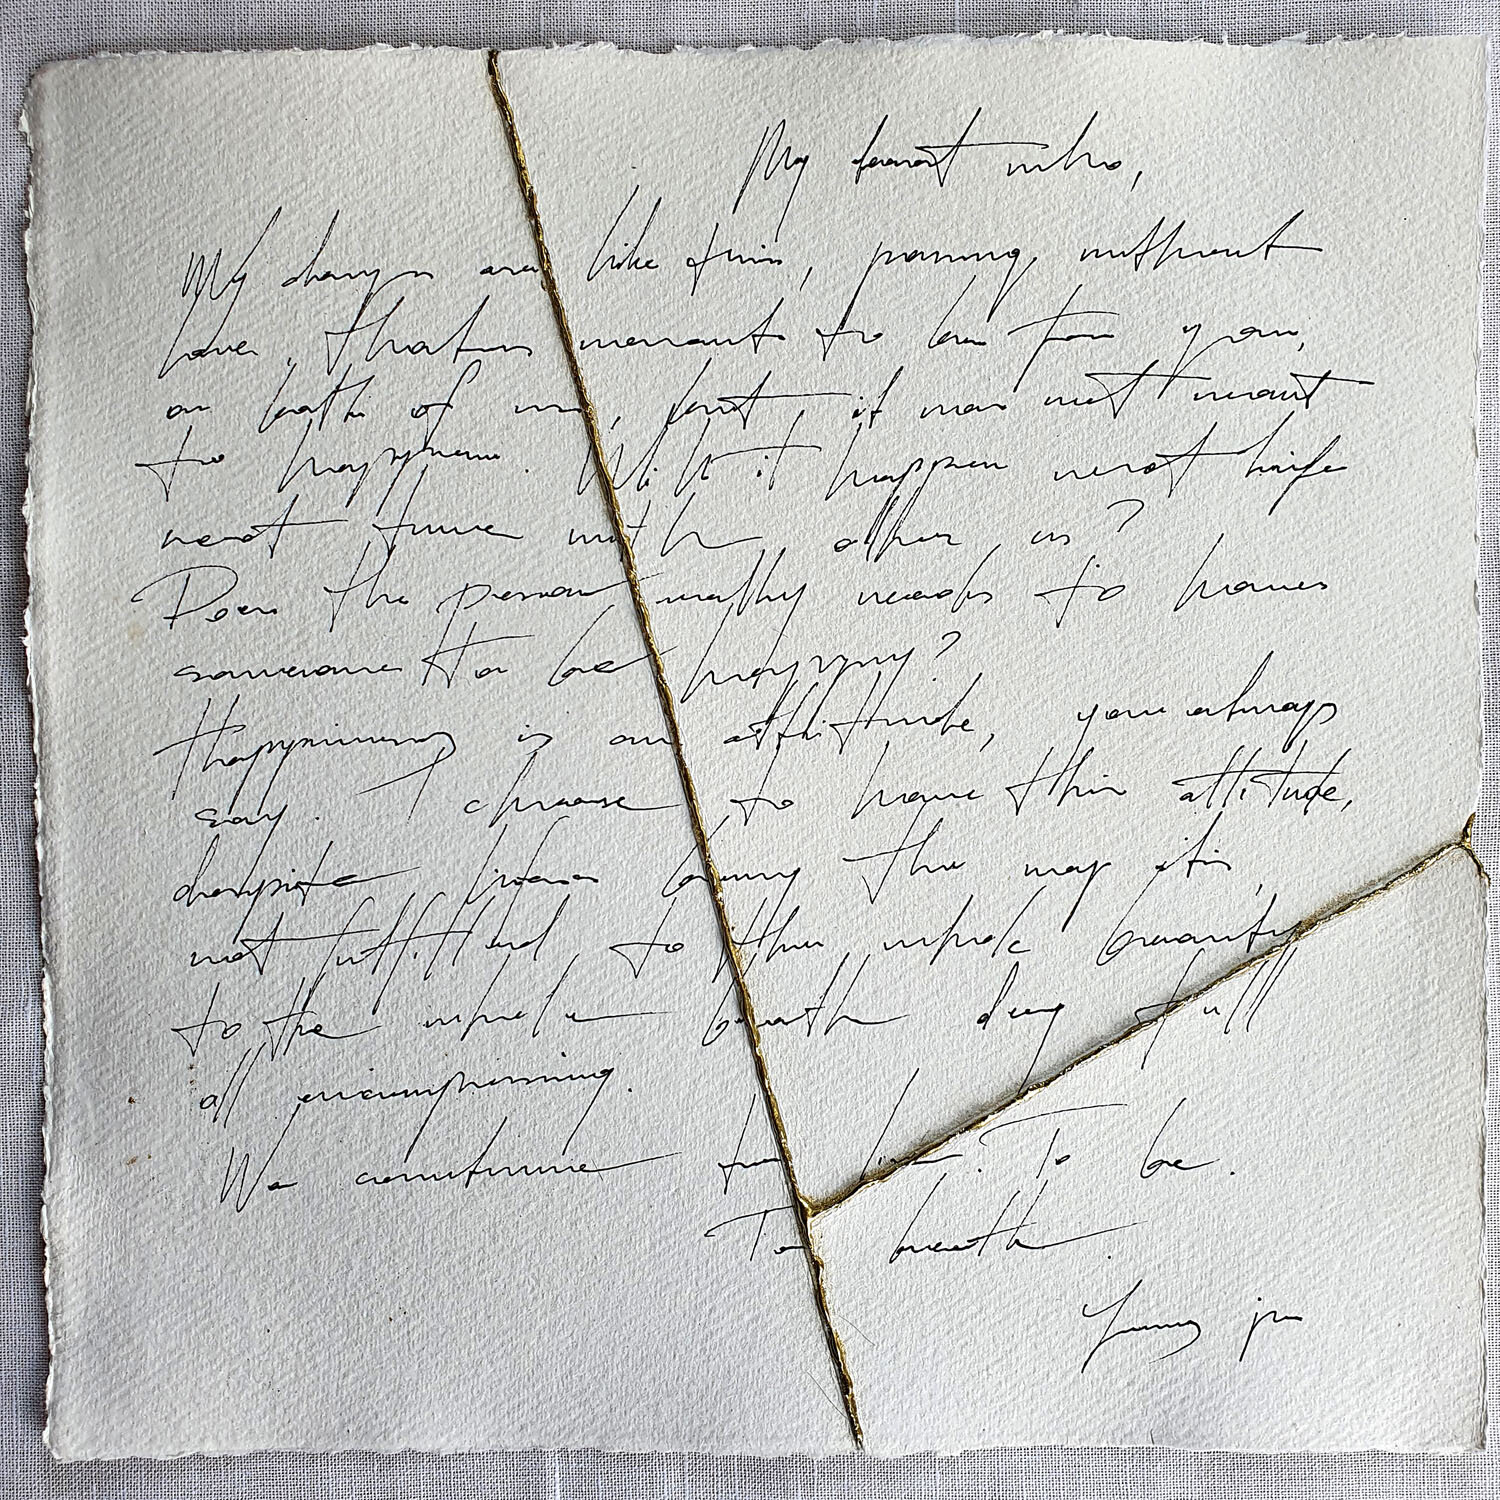 My dearest who,
My days are like this, passing without
love, that was meant to be for you,
or both of us, but it was not meant
to happen. Will it happen next life
next time with other us?
Does the person really needs to have
someone to be happy?
Happiness is an attitude, you always
say. I choose to have this attitude,
despite being the way it is,
not fulfilled to the whole beauty
to the whole breath deep full
all encompassing.
We continue to live. To be.
To breath.